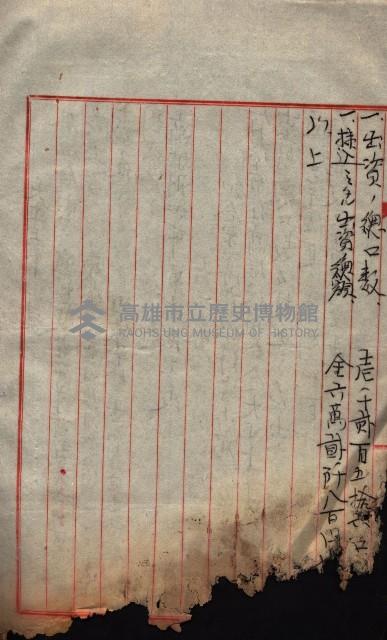 一、出資ノ總口數 壱千貳百五拾六口
一、拂込ミタル出資總額 金六萬貳阡八百円
以上
高雄市立歷史博物館
KAOHSIUNG MUSEUM OF HISTORY